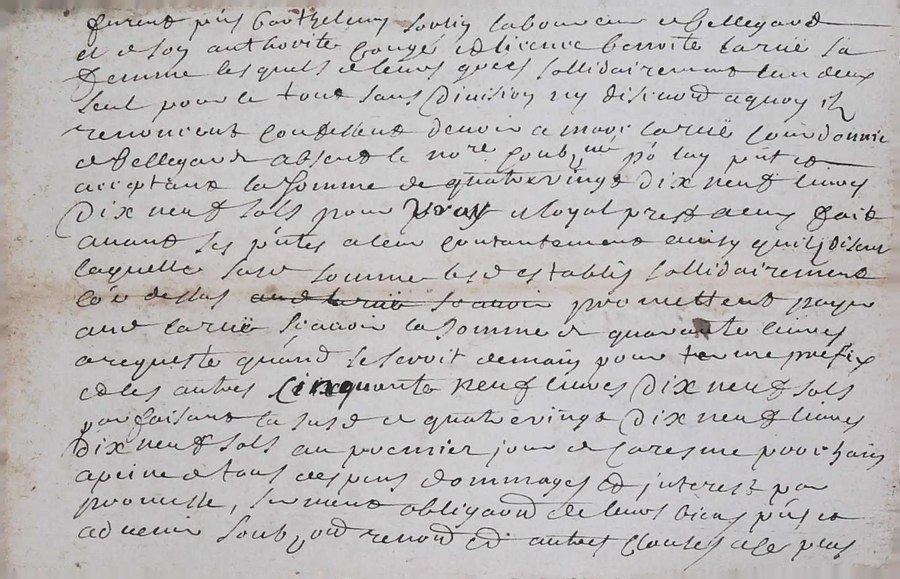 furent pñs Barthelemy Soulis laboureur de Bellegarde
et de soy authorite congé et licence benoite laruë sa
femme lesquels de leurs grees sollidairement lun deux
seul pour le tout sans Division ny discuon a quoy ilz
renoncent confessent devoir a marc laruë
de Bellegarde absent le no.re soubz.ne po luy pñt et
acceptant la somme de quatrevingt Dix neuf livres
Dix neuf sols pour vray et loyal prest a eux fait
avant ses pñtes a leur contantement ainsy quilz disent
laquelle susd somme lesd establis sollidairement
co'e dessus aud laruë scavoir promettent payer
aud laruë scavoir la somme de quarante livres
a requeste quand se seroit demain pour terme prefix
et les autres cinquante neuf livres Dix neuf sols
parfaisant la susd de quatrevingt Dix neuf livres
Dix neuf sols au premier jour de Caresme prochain
a peine de tous despens dommages et interest par
promesse, serment obligaon de leurs biens pñs et
advenir soubz.on renon et autres clauses a ce plus